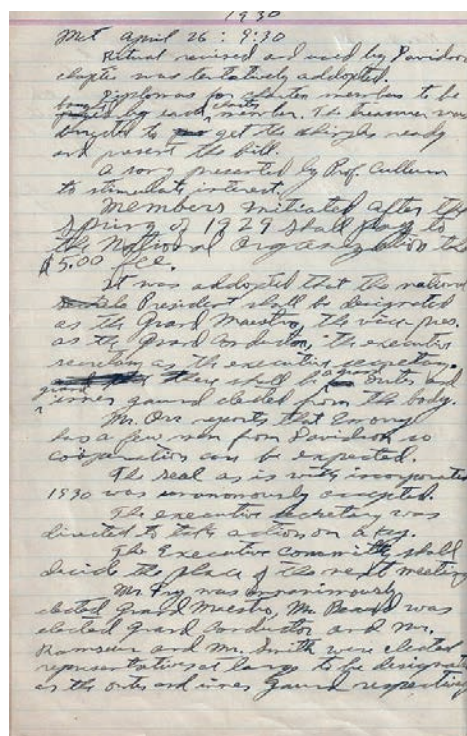 1930
Met April 26: 9:30
Ritual revised and used by Davidson
chapter was tentatively addopted.
Diplomas for charter members to be
bought by each charter member. The treasurer was
directed to get the shingles ready
and present the bill.
A song presented by Prof. Cullum
to stimulate interest.
Members initiated after the
Spring of 1929 shall pay to
the National Organization the
$5.00 fee.
It was addopted that the national
President shall be designated
as the Grand Maestro, the vice pres.
as the Grand Conductor, the executive
secretary as the executive secretary.
there shall be a grand outer and
grand inner gaurd elected from the body.
Mr. Orr reports that Emory
has a few men from Davidson so
cooperation can be expected.
The seal as is with incorporated
1930 was unanomously accepted.
The executive secretary was
directed to take action on a key.
The Executive Committe shall
decide the place of the next meeting
Mr. Fry was unanimously
elected Grand Maestro, Mr. was
elected Grand Conductor and Mr.
Ramseur and Mr. Smith were elected
representatives at large to be designat
as the outer and inner gaurd respectively